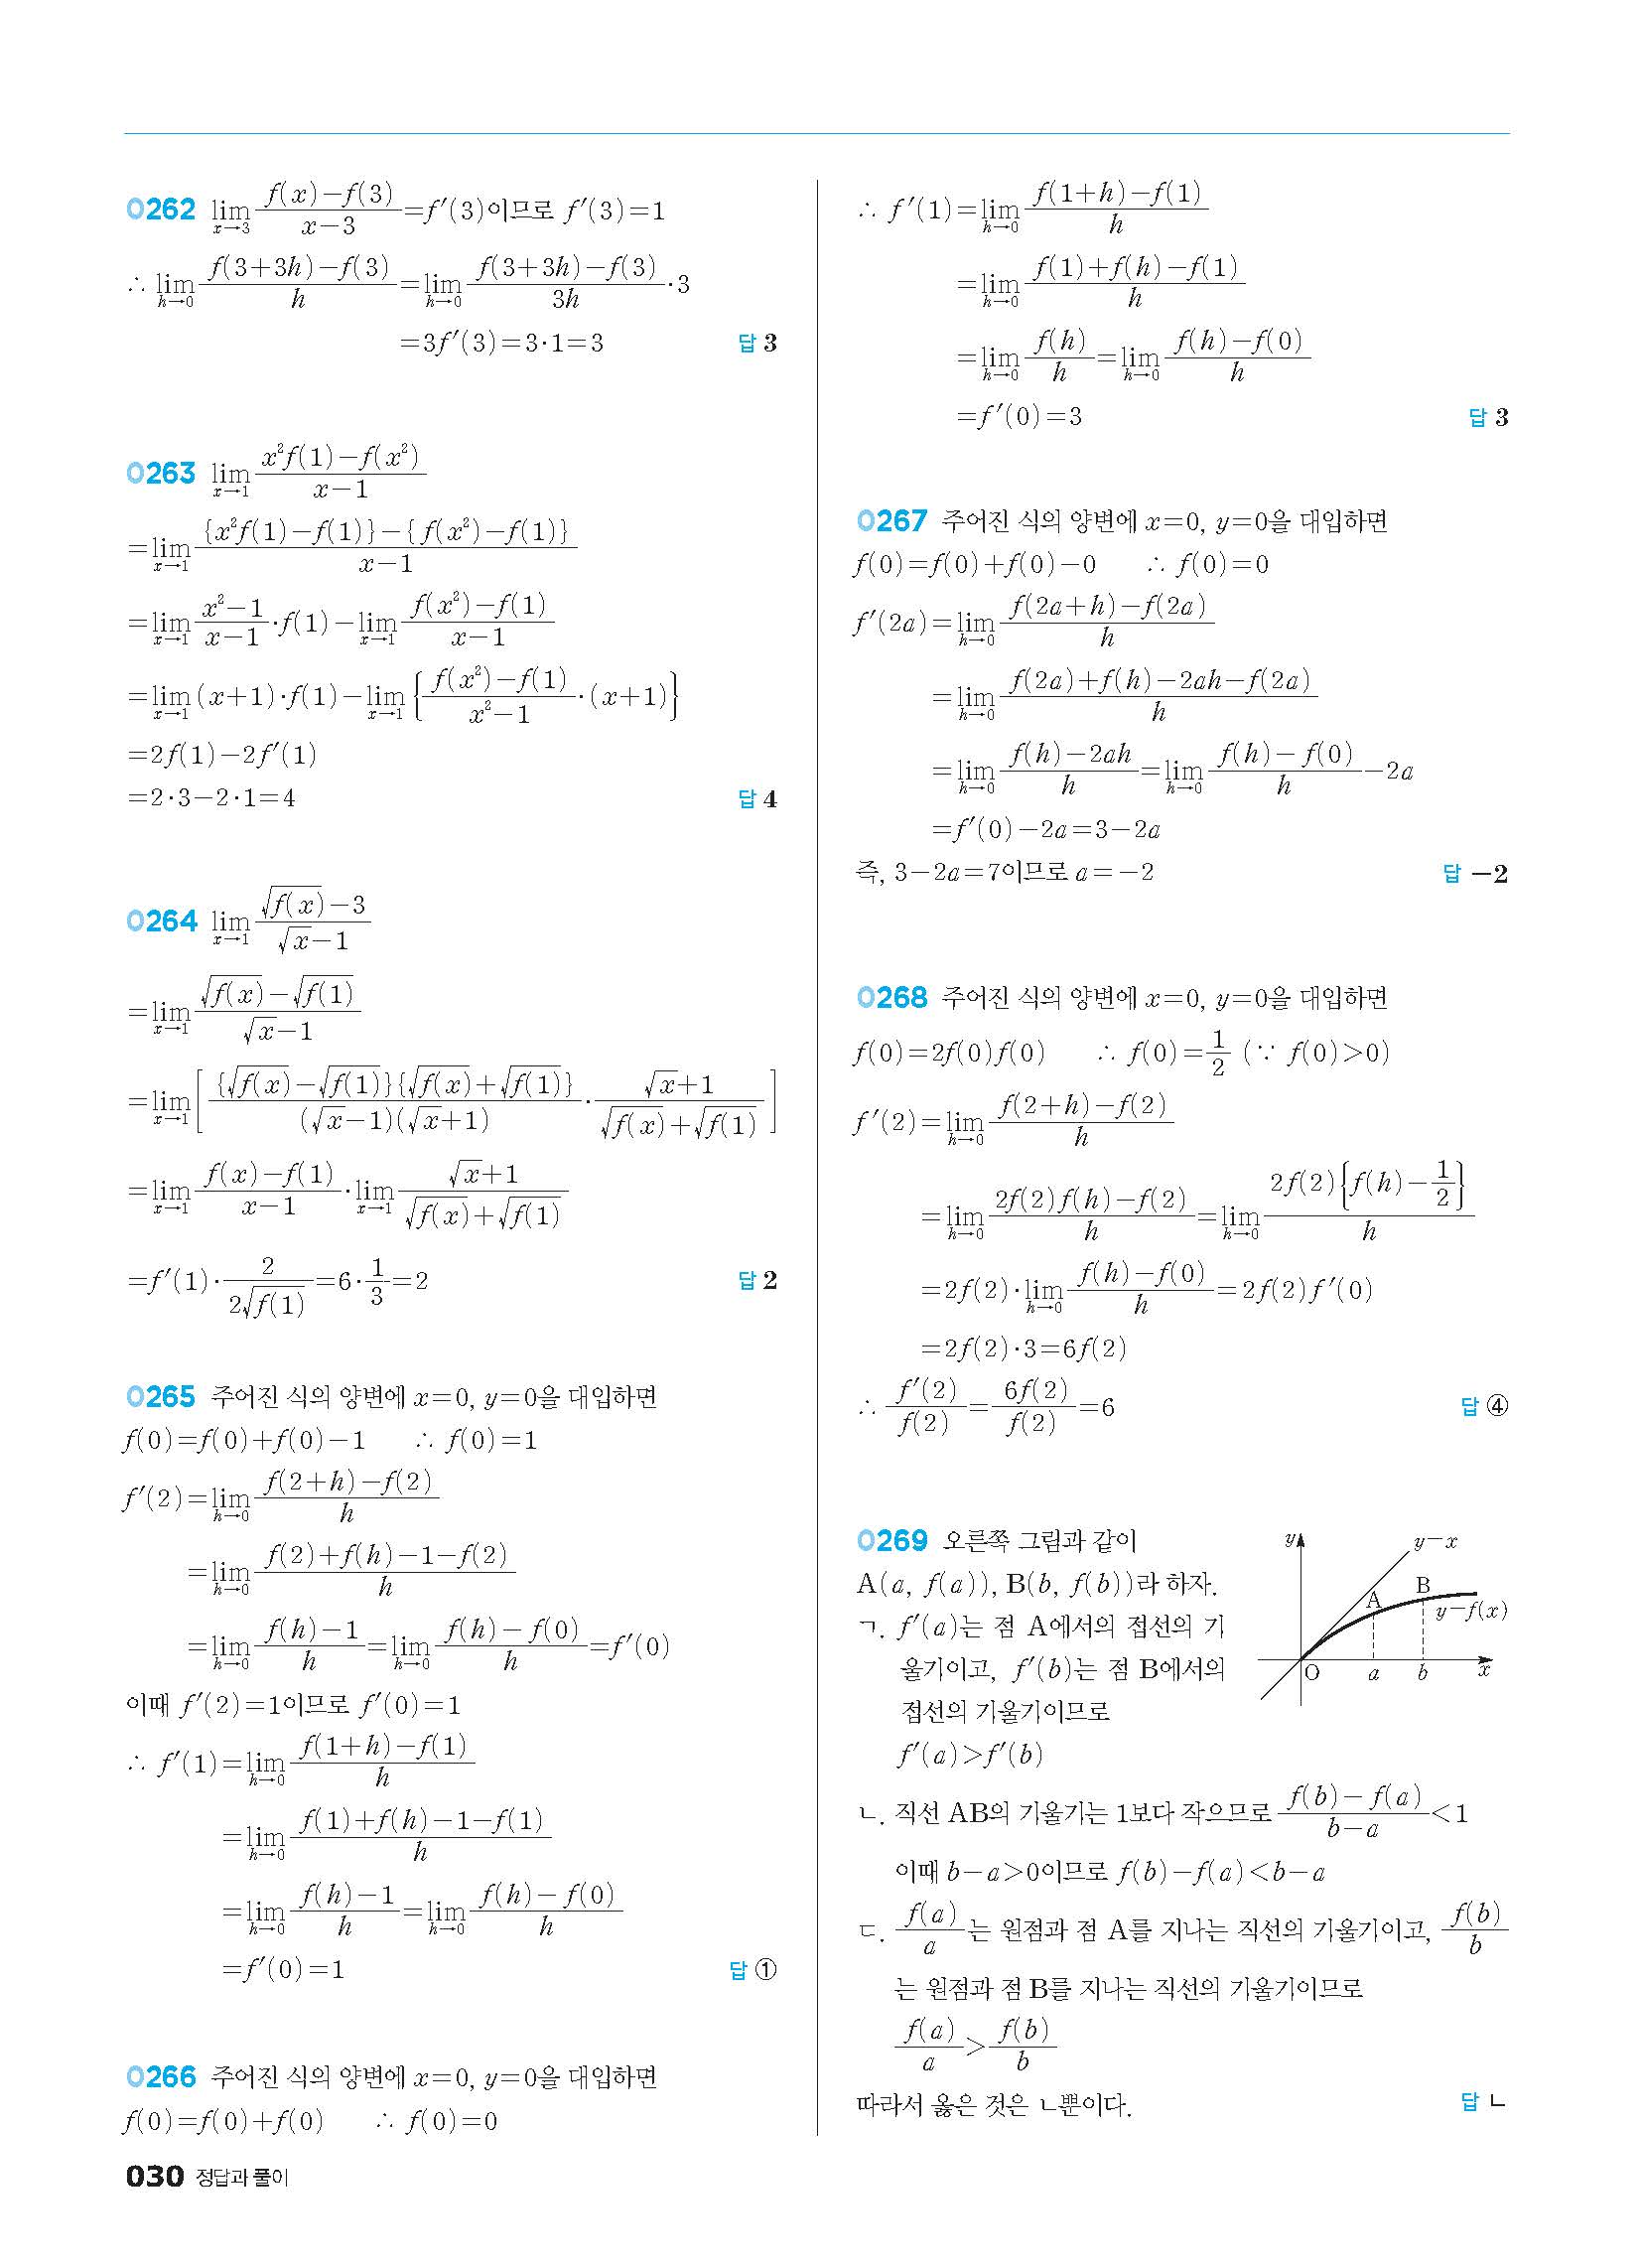 0262 lim_{x→3} (f(x)−f(3))/(x−3)=f′(3)이므로 f′(3)=1
∴ lim_{h→0} (f(3+3h)−f(3))/h=lim_{h→0} (f(3+3h)−f(3))/(3h)·3
=3f′(3)=3·1=3 답 3
0263 lim_{x→1} (x²f(1)−f(x²))/(x−1)
=lim_{x→1} ({x²f(1)−f(1)}−{f(x²)−f(1)})/(x−1)
=lim_{x→1} (x²−1)/(x−1)·f(1)−lim_{x→1} (f(x²)−f(1))/(x−1)
=lim_{x→1} (x+1)·f(1)−lim_{x→1} {(f(x²)−f(1))/(x²−1)·(x+1)}
=2f(1)−2f′(1)
=2·3−2·1=4 답 4
0264 lim_{x→1} (√f(x)−3)/(√x−1)
=lim_{x→1} (√f(x)−√f(1))/(√x−1)
=lim_{x→1} [({√f(x)−√f(1)}{√f(x)+√f(1)})/((√x−1)(√x+1))·(√x+1)/(√f(x)+√f(1))]
=lim_{x→1} (f(x)−f(1))/(x−1)·lim_{x→1} (√x+1)/(√f(x)+√f(1))
=f′(1)·2/(2√f(1))=6·1/3=2 답 2
0265 주어진 식의 양변에 x=0, y=0을 대입하면
f(0)=f(0)+f(0)−1 ∴ f(0)=1
f′(2)=lim_{h→0} (f(2+h)−f(2))/h
=lim_{h→0} (f(2)+f(h)−1−f(2))/h
=lim_{h→0} (f(h)−1)/h=lim_{h→0} (f(h)−f(0))/h=f′(0)
이때 f′(2)=1이므로 f′(0)=1
∴ f′(1)=lim_{h→0} (f(1+h)−f(1))/h
=lim_{h→0} (f(1)+f(h)−1−f(1))/h
=lim_{h→0} (f(h)−1)/h=lim_{h→0} (f(h)−f(0))/h
=f′(0)=1 답 ①
0266 주어진 식의 양변에 x=0, y=0을 대입하면
f(0)=f(0)+f(0) ∴ f(0)=0
∴ f′(1)=lim_{h→0} (f(1+h)−f(1))/h
=lim_{h→0} (f(1)+f(h)−f(1))/h
=lim_{h→0} f(h)/h=lim_{h→0} (f(h)−f(0))/h
=f′(0)=3 답 3
0267 주어진 식의 양변에 x=0, y=0을 대입하면
f(0)=f(0)+f(0)−0 ∴ f(0)=0
f′(2a)=lim_{h→0} (f(2a+h)−f(2a))/h
=lim_{h→0} (f(2a)+f(h)−2ah−f(2a))/h
=lim_{h→0} (f(h)−2ah)/h=lim_{h→0} (f(h)−f(0))/h−2a
=f′(0)−2a=3−2a
즉, 3−2a=7이므로 a=−2 답 −2
0268 주어진 식의 양변에 x=0, y=0을 대입하면
f(0)=2f(0)f(0) ∴ f(0)=1/2 (∵ f(0)>0)
f′(2)=lim_{h→0} (f(2+h)−f(2))/h
=lim_{h→0} (2f(2)f(h)−f(2))/h=lim_{h→0} (2f(2){f(h)−1/2})/h
=2f(2)·lim_{h→0} (f(h)−f(0))/h=2f(2)f′(0)
=2f(2)·3=6f(2)
∴ f′(2)/f(2)=6f(2)/f(2)=6 답 ④
0269 오른쪽 그림과 같이
A(a, f(a)), B(b, f(b))라 하자.
ㄱ. f′(a)는 점 A에서의 접선의 기
울기이고, f′(b)는 점 B에서의
접선의 기울기이므로
f′(a)>f′(b)
y
y=x
B
A
y=f(x)
O a b x
ㄴ. 직선 AB의 기울기는 1보다 작으므로 (f(b)−f(a))/(b−a)<1
이때 b−a>0이므로 f(b)−f(a)<b−a
ㄷ. f(a)/a는 원점과 점 A를 지나는 직선의 기울기이고, f(b)/b
는 원점과 점 B를 지나는 직선의 기울기이므로
f(a)/a>f(b)/b
따라서 옳은 것은 ㄴ뿐이다. 답 ㄴ
030 정답과 풀이